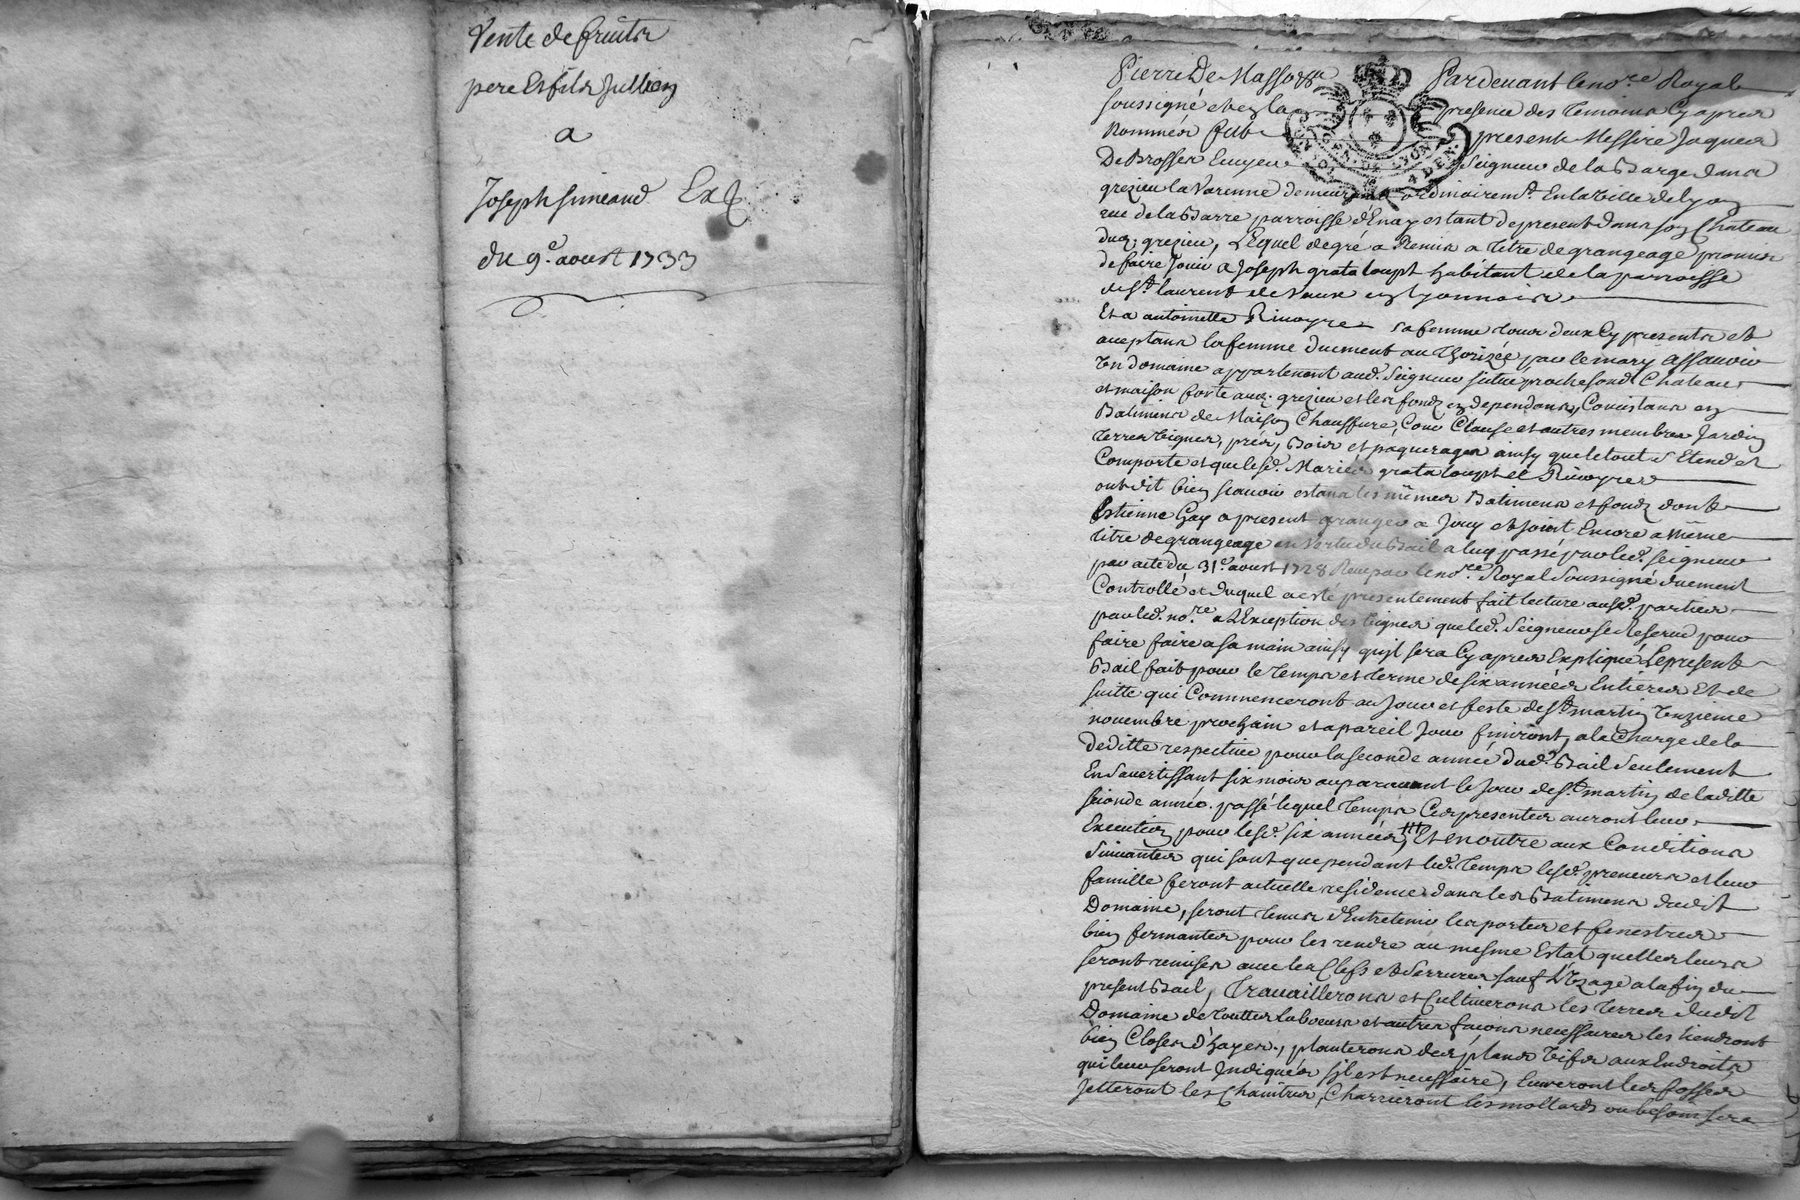 Vente de fruits
pere Et fils Jullien
a
Joseph Simeand Exp
du 9e. aoust 1733
Pierre De Masso Pardevant le nore. Royal
soussigné et ez la presence des temoins Cy apres
Nommés fut present Messire Jaques
De Brosses Ecuyer Seigneur de la Barge dans
grezieu la Varenne demeurant ordinairemt. En la Ville de Lyon
rue de la Barre parroisse d'Enay estant de present dans son Chateau
dud. grezieu, Lequel de gré a Remis a titre de grangeage promis
de faire Jouir a Joseph grataloupt habitant de la parroisse
de St. laurent de Vaux en Lyonnois
Et a antoinette Rivoyre sa femme tous deux Cy presents et
aceptans la femme duement authorizée par le mary assavoir
Un domaine appartenant aud. Seigneur situé proche sond. Chateau
et maison forte aud. grezieu et les fondz en dependans, Consistans en
Batimens de Maison Chauffure, Cour Clause et autres membres Jardin
terres Vignes, prés, Bois et paquerages ainsy que le tout s'Etend et
Comporte et que lesd. Mariés grataloupt et Rivoyre
ont dit bien scavoir estans les mêmes Batimens et fondz dont
Estienne Gay a present granger a Jouy et Jouit Encore a même
titre de grangeage en Vertu du Bail a luy passé par led. seigneur
par acte du 31e. aoust 1728 Receu par le nore. Royal Soussigné duement
Controllé et duquel a esté presentement fait lecture ausd. parties
par led. nore. a L'Exception des Vignes que led. Seigneur se Reserve pour
faire faire a sa main ainsy qu'il sera Cy apres Expliqué, Le present
Bail fait pour le temps et terme de six années Entieres Et de
suitte qui Commenceront au Jour et feste de St. martin Unzieme
novembre prochain et a pareil Jour finiront, a la Charge de la
deditte respective pour la seconde année dud. Bail seulement
En s'avertissant six mois auparavant le Jour de St. martin de laditte
seconde année. passé lequel temps Ces presentes auront leur
Execution pour lesd. six années, Et en outre aux Conditions
Suivantes qui sont que pendant led. temps lesd. preneurs et leur
famille feront actuelle residence dans les Batimens dudit
Domaine, seront tenus d'Entretenir les portes et fenestres
bien fermantes pour les rendre au mesme Estat quelles leurs
seront remises avec les Clefs et Serrures sauf L'Uzage a la fin du
present Bail, Travaillerons et Cultiverons les terres dudit
Domaine de touttes labeurs et autres façons necessaires les tiendront
bien Closes d'hayes, planterons des plans Vifs aux Endroits
qui leur seront Indiqués s'il est necessaire, Cureront les fosses
Jetteront les Chaintres, Charrieront les mollards ou besoin sera